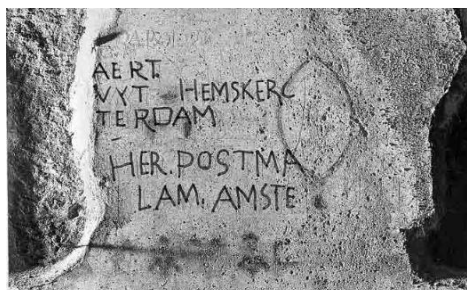 AERT.
VYT HEMSKERC
TERDAM
HER. POSTMA
LAM. AMSTE